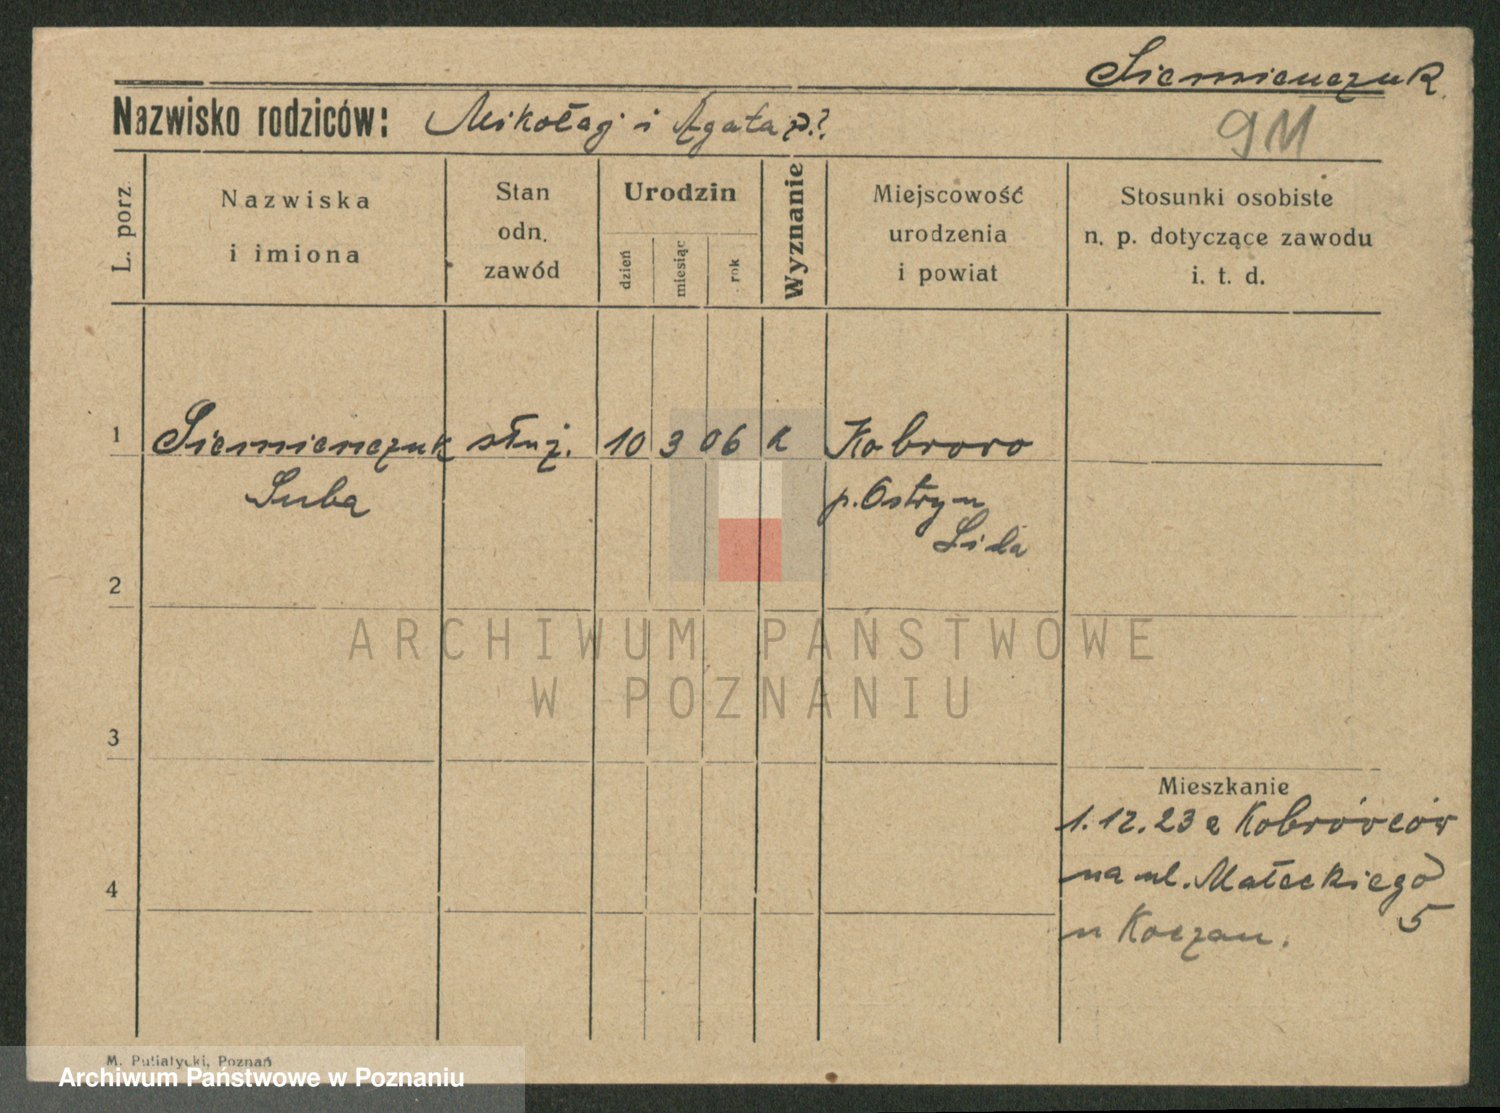 Siemienczuk
Nazwisko rodziców: Mikołaj i Agata z.?
911
L. porz.
Nazwiska
i imiona
Stan
odn.
zawód
Urodzin
dzień
miesiąc
rok
Wyznanie
Miejscowość
urodzenia
i powiat
Stosunki osobiste
n. p. dotyczące zawodu
i. t. d.
1 Siemienczuk służ. 10 3 06 k Kobroro
Luba p. Ostryn
Lida
2
ARCHIWUM PAŃSTWOWE
W POZNANIU
3
Mieszkanie
1.12.23 z Kobrówców
na ul. Małeckiego
5
4
u Koczan.
M. Putiatycki, Poznań
Archiwum Państwowe w Poznaniu